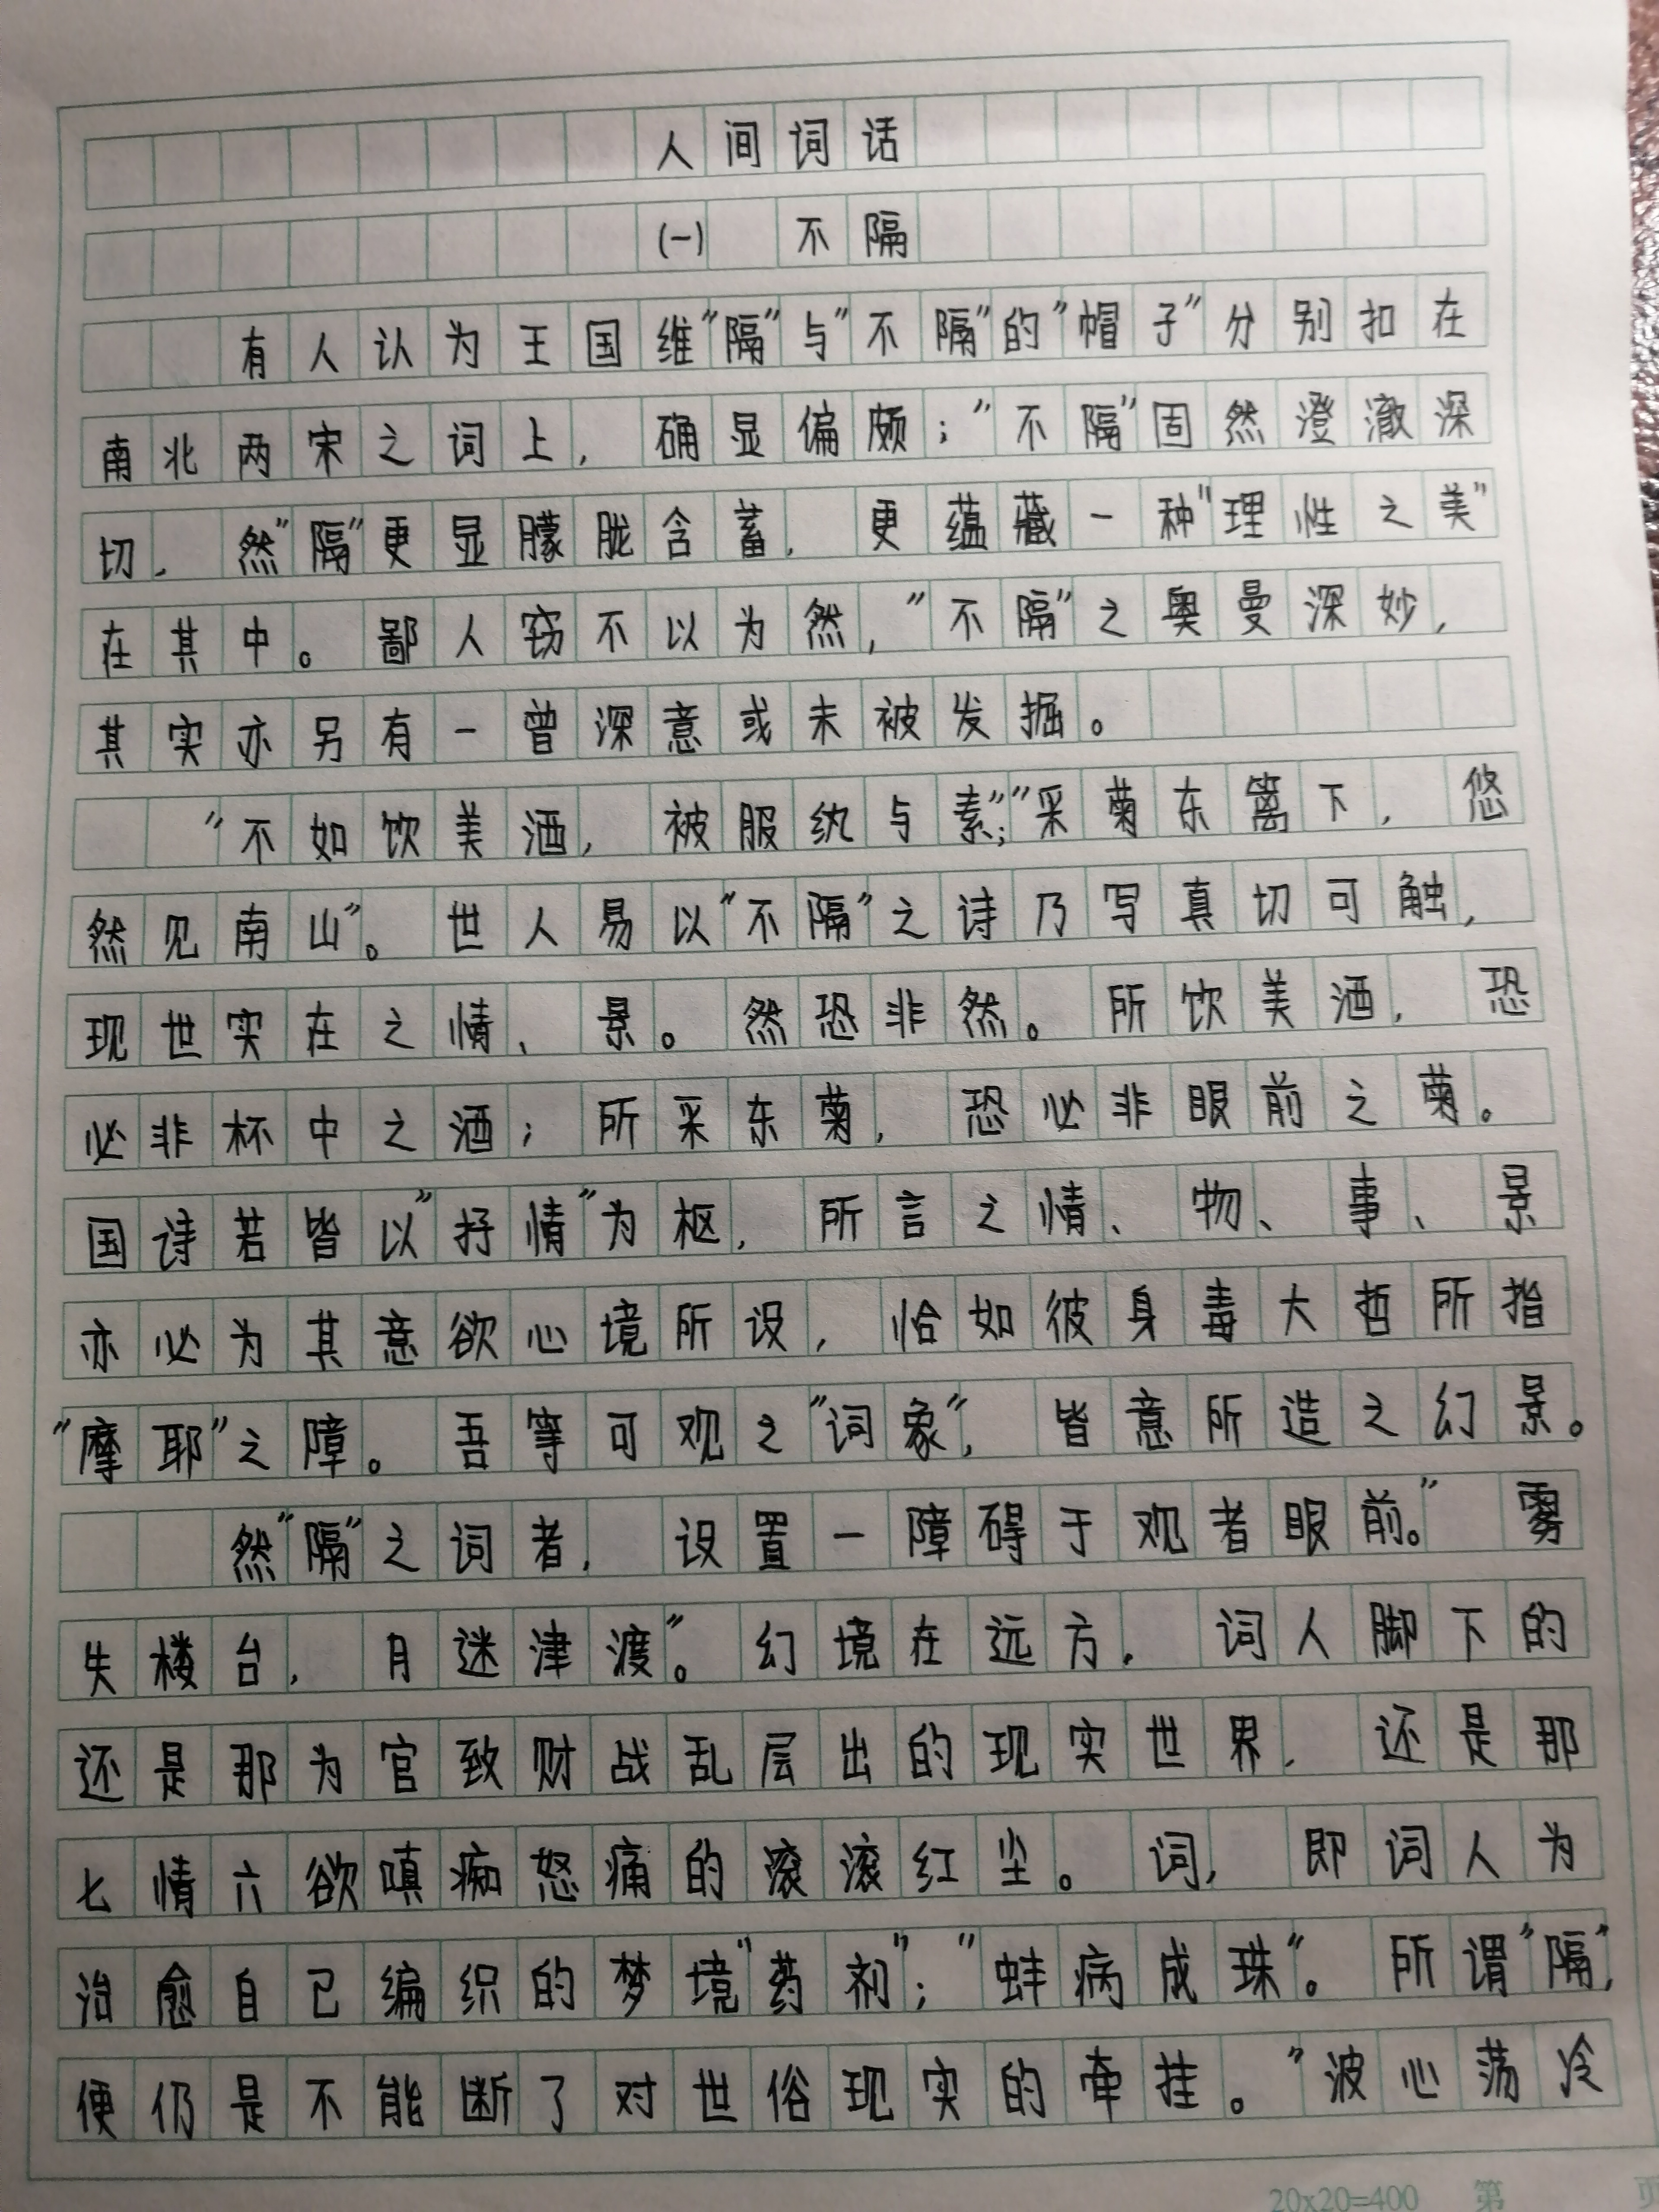 人间词话
(一) 不隔
有人认为王国维"隔"与"不隔"的"帽子"分别扣在
南北两宋之词上，确显偏颇；"不隔"固然澄澈深
切，然"隔"更显朦胧含蓄，更蕴藏一种"理性之美"
在其中。鄙人窃不以为然，"不隔"之奥曼深妙，
其实亦另有一曾深意或未被发掘。
"不如饮美酒，被服纨与素"；"采菊东篱下，悠
然见南山"。世人易以"不隔"之诗乃写真切可触，
现世实在之情、景。然恐非然。所饮美酒，恐
必非杯中之酒；所采东菊，恐必非眼前之菊。
国诗若皆以"抒情"为枢，所言之情、物、事、景
亦必为其意欲心境所设，恰如彼身毒大哲所指
"摩耶"之障。吾等可观之"词象"，皆意所造之幻景。
然"隔"之词者，设置一障碍于观者眼前。"雾
失楼台，月迷津渡"。幻境在远方，词人脚下的
还是那为官致财战乱层出的现实世界，还是那
七情六欲嗔痴怒痛的滚滚红尘。词，即词人为
治愈自己编织的梦境"药剂"；"蚌病成珠"。所谓"隔"，
便仍是不能断了对世俗现实的牵挂。"波心荡冷
20x20=400 第 页